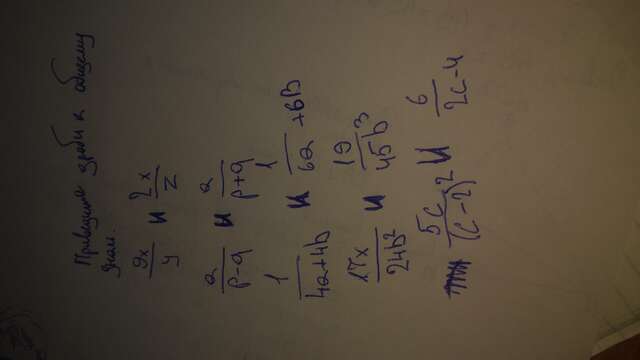 Приведите дроби к общему
знам.
9x/y и 2x/z
a/p-q и a/p+q
1/4a+4b и 1/6a+6B
17x/24b² и 19/45b³
5c/(c-2)² и 6/2c-4